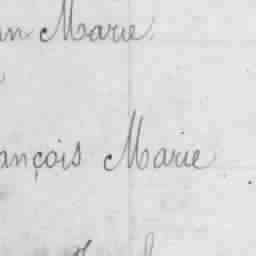 an Marie
ançois Marie